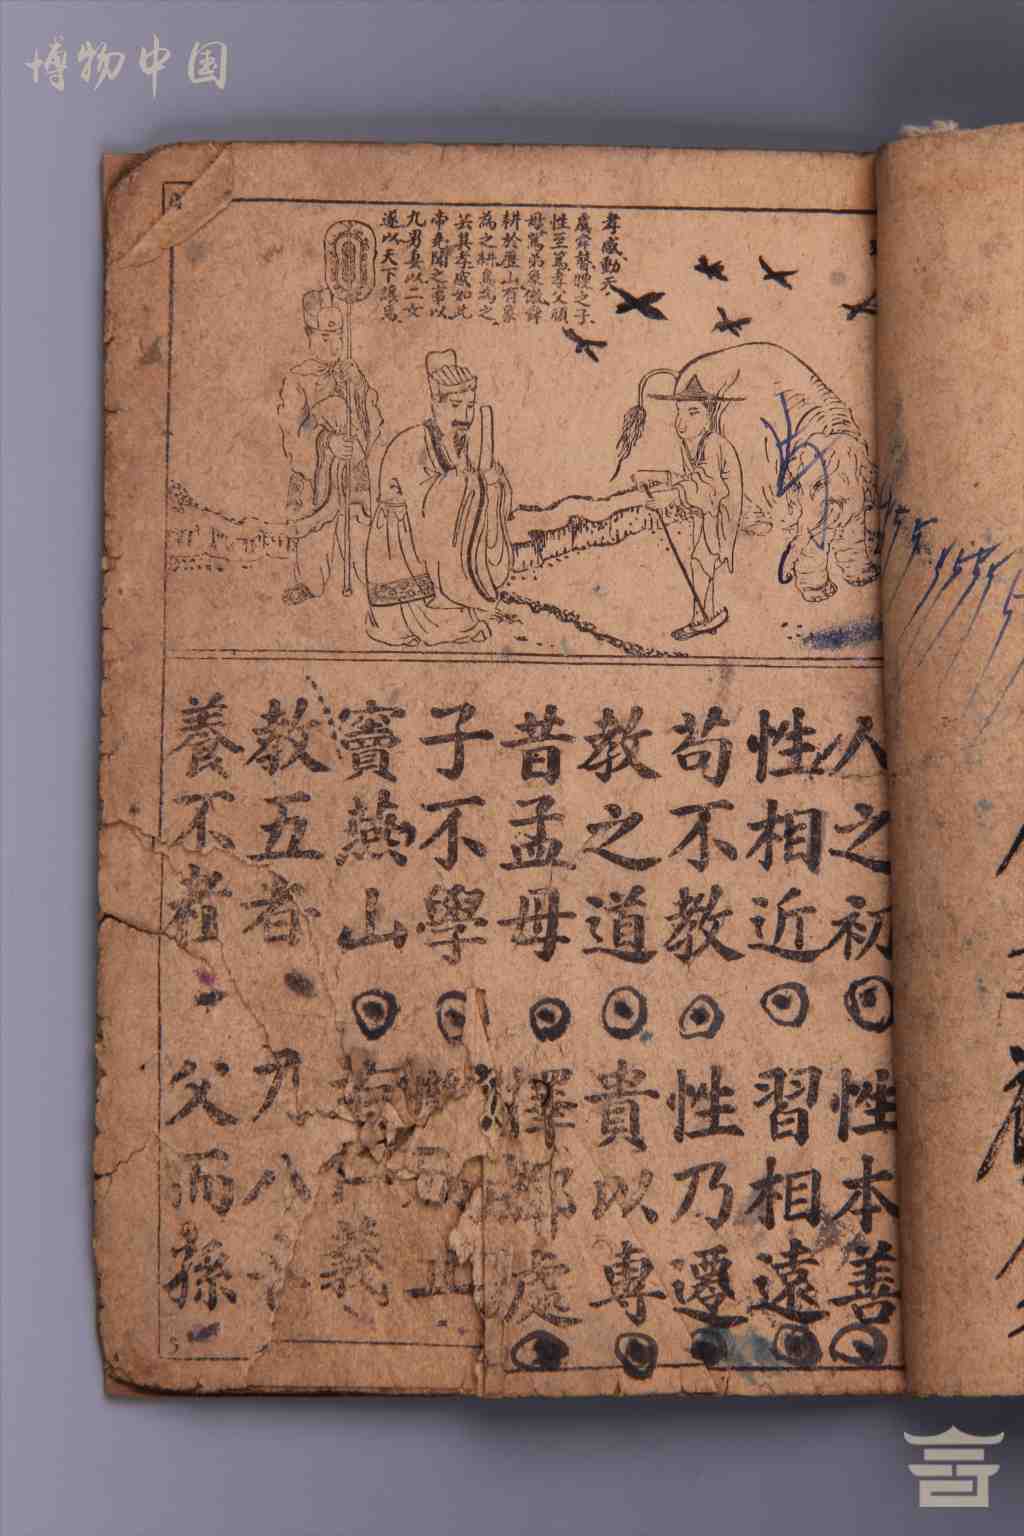 博物中国
孝感動天
虞舜瞽瞍之子
性至篤孝父頑
母嚚弟象傲舜
耕於歷山有象
為之耕鳥為之
芸其孝感如此
帝堯聞之事以
九男妻以二女
遂以天下讓焉
人之初 性本善
性相近 習相遠
苟不教 性乃遷
教之道 貴以專
昔孟母 擇鄰處
子不學
竇燕山 義
教五者 八
養不者 父而孫
5